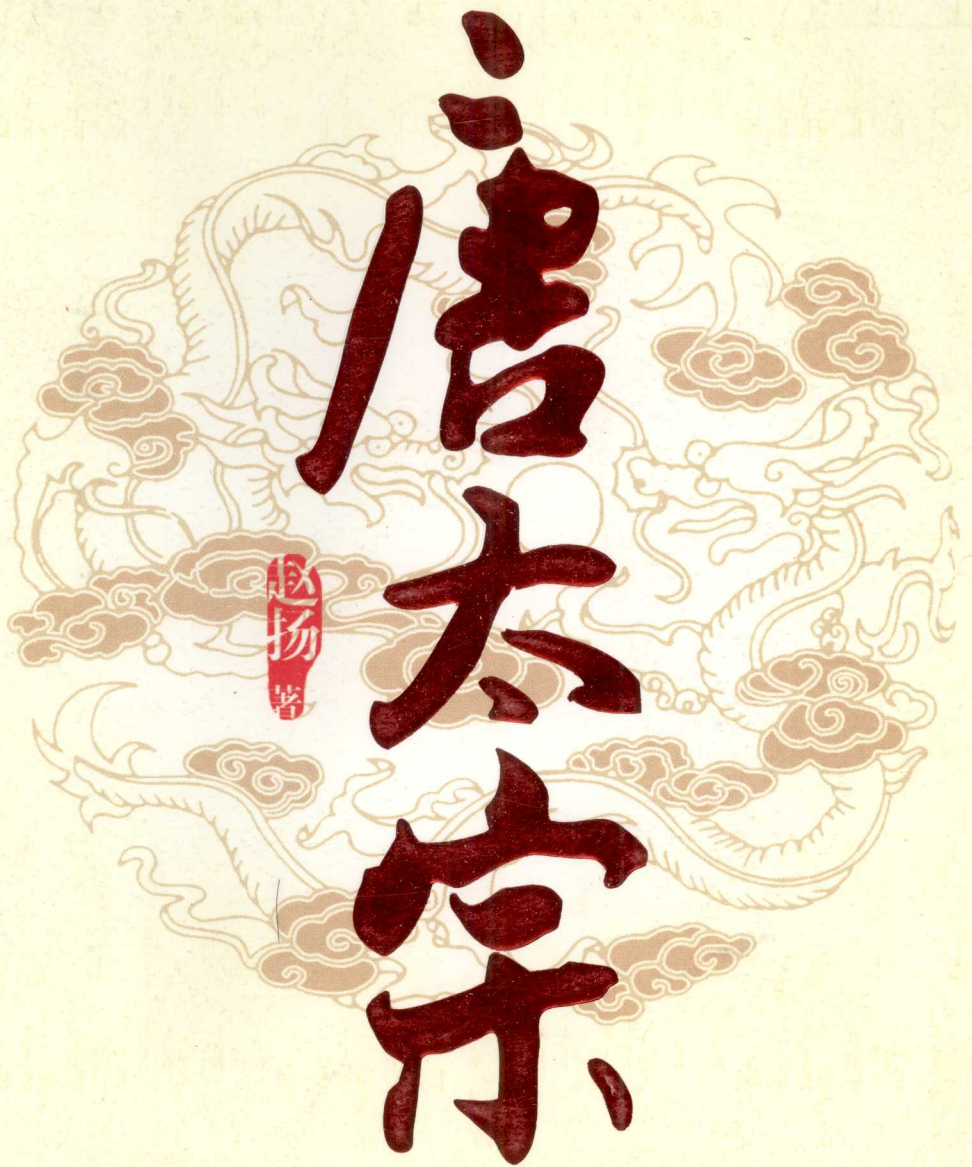 唐太宗
赵扬 著